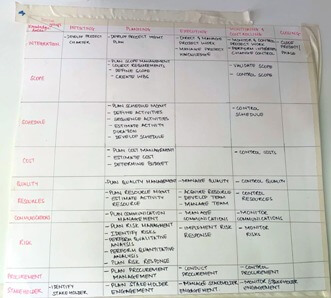 Knowledge Areas
INITIATING
PLANNING
EXECUTING
MONITORING & CONTROLLING
CLOSING
INTEGRATION
-DEVELOP PROJECT CHARTER
-DEVELOP PROJECT MGMT PLAN
-DIRECT & MANAGE PROJECT WORK
-MANAGE PROJECT KNOWLEDGE
-MONITOR & CONTROL PROJECT WORK
-PERFORM INTEGRATED CHANGE CONTROL
CLOSE PROJECT/ PHASE
SCOPE
-PLAN SCOPE MANAGEMENT
-COLLECT REQUIREMENTS
-DEFINE SCOPE
-CREATE WBS
-VALIDATE SCOPE
-CONTROL SCOPE
SCHEDULE
-PLAN SCHEDULE MGMT
-DEFINE ACTIVITIES
-SEQUENCE ACTIVITIES
-ESTIMATE ACTIVITY DURATION
-DEVELOP SCHEDULE
-CONTROL SCHEDULE
COST
-PLAN COST MANAGEMENT
-ESTIMATE COST
-DETERMINE BUDGET
-CONTROL COSTS
QUALITY
-PLAN QUALITY MANAGEMENT
-MANAGE QUALITY
-CONTROL QUALITY
RESOURCES
-PLAN RESOURCE MGMT
-ESTIMATE ACTIVITY RESOURCE
-ACQUIRE RESOURCE
-DEVELOP TEAM
-MANAGE TEAM
-CONTROL RESOURCES
COMMUNICATIONS
-PLAN COMMUNICATION MANAGEMENT
-MANAGE COMMUNICATIONS
-MONITOR COMMUNICATIONS
RISK
-PLAN RISK MANAGEMENT
-IDENTIFY RISKS
-PERFORM QUALITATIVE ANALYSIS
-PERFORM QUANTITATIVE ANALYSIS
-PLAN RISK RESPONSE
-IMPLEMENT RISK RESPONSE
-MONITOR RISKS
PROCUREMENT
-PLAN PROCUREMENT MANAGEMENT
-CONDUCT PROCUREMENT
-CONTROL PROCUREMENT
STAKEHOLDER
-IDENTIFY STAKEHOLDER
-PLAN STAKEHOLDER ENGAGEMENT
-MANAGE STAKEHOLDER ENGAGEMENT
-MONITOR STAKEHOLDER ENGAGEMENT